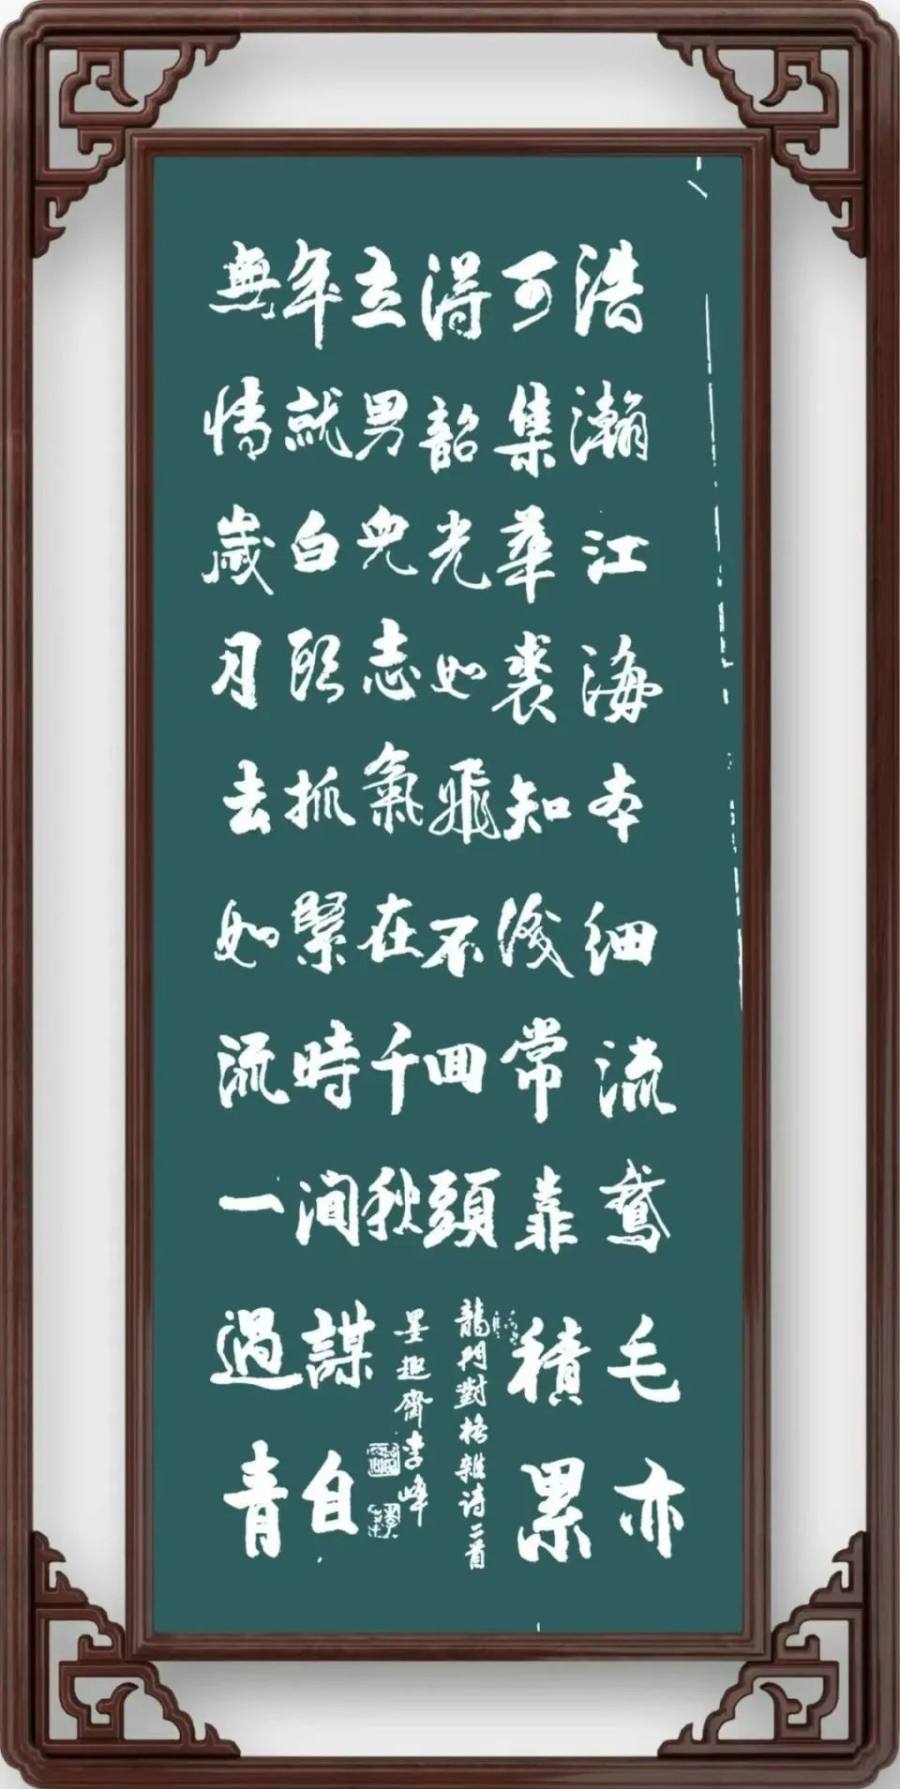 浩瀚江海本細流鵞毛亦
可集華裘知淺常靠積累
得韶光如飛不回頭
無情歲月去如流一過青
年就白頭抓緊時間謀自
立男兒志氣在千秋
龍門對格雜诗二首
墨趣齋李峰